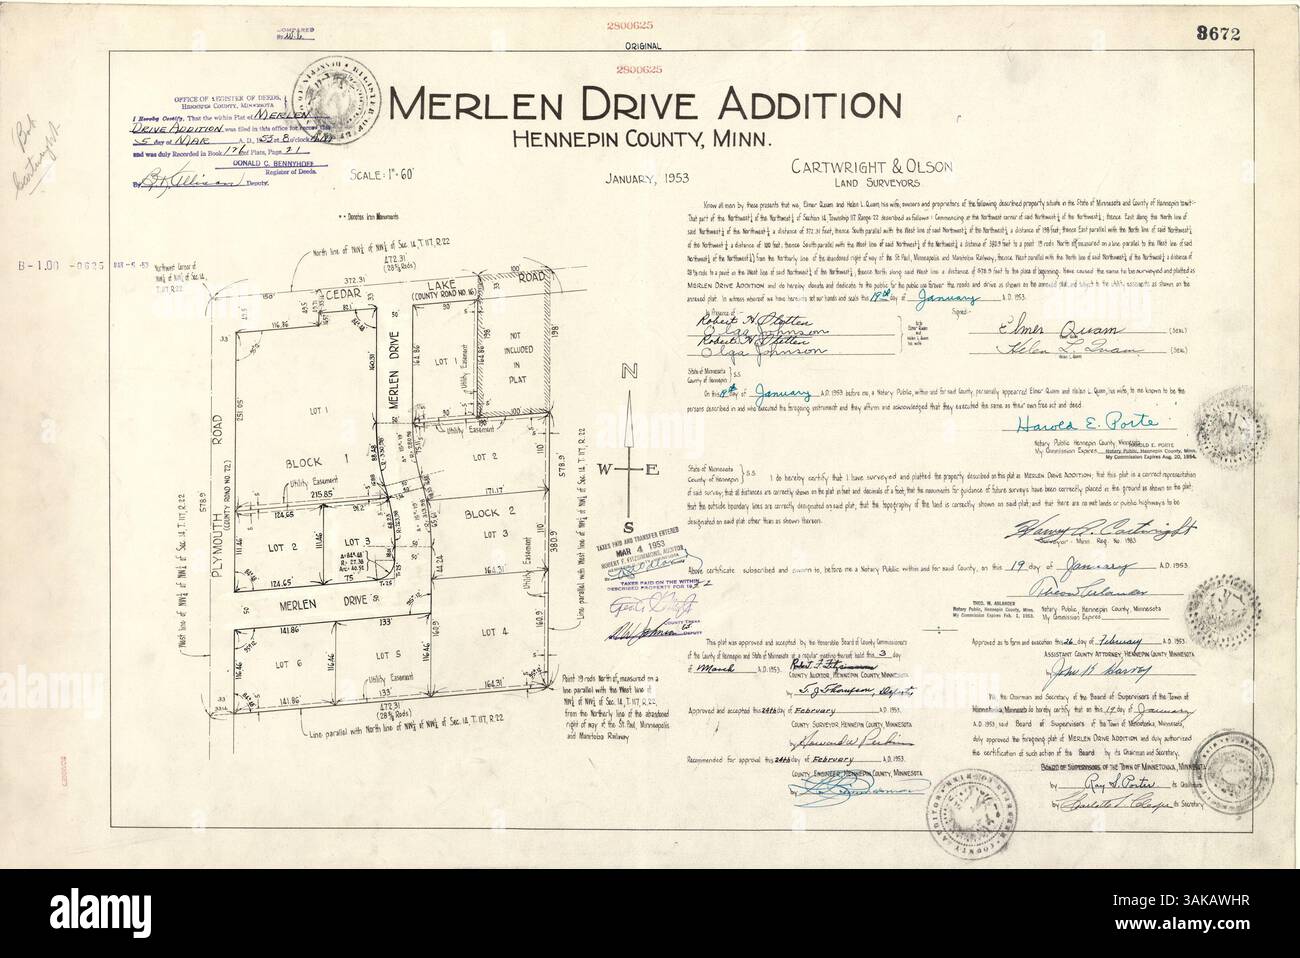 COMPARED
2800625
ORIGINAL
8672
2800625
OFFICE OF REGISTER OF DEEDS,
HENNEPIN COUNTY, MINNESOTA
I Hereby Certify, That the within Plat of MERLEN
DRIVE ADDITION was filed in this office for record this
5 day of MAR A. D., 1953 at 8 o'clock A.M.
and was duly Recorded in Book 126 of Plats, Page 21
DONALD C. BENNYHOFF
Register of Deeds.
By Deputy.
MERLEN DRIVE ADDITION
HENNEPIN COUNTY, MINN.
SCALE: 1"=60'
JANUARY, 1953
CARTWRIGHT & OLSON
LAND SURVEYORS
Denotes Iron Monuments
B-1.00 -0625 MAR-5-53
North line of NW¼ of NW¼ of Sec. 14, T. 117, R. 22
472.31'
(28⅝ Rods)
372.31'
100'
Northwest Corner of
NW¼ of NW¼ of Sec. 14,
T. 117, R. 22
CEDAR LAKE ROAD
(COUNTY ROAD NO. 16)
150'
116.86
PLYMOUTH ROAD
(COUNTY ROAD NO. 72)
MERLEN DRIVE
LOT 1
NOT
INCLUDED
IN
PLAT
198'
164.86
Utility Easement
251.05'
160.31'
LOT 1
BLOCK 1
Utility Easement
215.85'
LOT 2
171.17
BLOCK 2
LOT 2
LOT 3
LOT 3
124.65
111.46
124.65'
75'
164.31'
110
578.9
380.9
MERLEN DRIVE
141.86
133'
LOT 6
LOT 5
LOT 4
116.46
160.9
141.86
133'
164.31'
Utility Easement
472.31'
(28⅝ Rods)
Line parallel with North line of NW¼ of NW¼ of Sec. 14, T. 117, R. 22
West line of NW¼ of NW¼ of Sec. 14, T. 117, R. 22
Line parallel with West line of NW¼ of NW¼ of Sec. 14, T. 117, R. 22
N
W E
S
TAXES PAID AND TRANSFER ENTERED
MAR 4 1953
ROBERT F. FITZSIMMONS, AUDITOR
TAXES PAID ON THE WITHIN
DESCRIBED PROPERTY FOR
DEPUTY
Point 19 rods North of, measured on a
line parallel with the West line of
NW¼ of NW¼ of Sec. 14, T. 117, R. 22,
from the Northerly line of the abandoned
right of way of the St. Paul, Minneapolis
and Manitoba Railway
Know all men by these presents that we, Elmer Quam and Helen L. Quam, his wife, owners and proprietors of the following described property situate in the State of Minnesota and County of Hennepin to-wit:
That part of the Northwest ¼ of the Northwest ¼ of Section 14 Township 117 Range 22 described as follows: Commencing at the Northwest corner of said Northwest ¼ of the Northwest ¼; thence East along the North line of
said Northwest ¼ of the Northwest ¼ a distance of 372.31 feet, thence South parallel with the West line of said Northwest ¼ of the Northwest ¼ a distance of 198 feet; thence East parallel with the North line of said Northwest ¼
of the Northwest ¼ a distance of 100 feet; thence South parallel with the West line of said Northwest ¼ of the Northwest ¼ a distance of 380.9 feet to a point 19 rods North of, measured on a line parallel to the West line of said
Northwest ¼ of the Northwest ¼ from the Northerly line of the abandoned right of way of the St. Paul, Minneapolis and Manitoba Railway, thence West parallel with the North line of said Northwest ¼ of the Northwest ¼ a distance of
28⅝ rods to a point in the West line of said Northwest ¼ of the Northwest ¼, thence North along said West line a distance of 578.9 feet to the place of beginning. Have caused the same to be surveyed and platted as
MERLEN DRIVE ADDITION and do hereby donate and dedicate to the public for the public use forever the roads and drive as shown on the annexed plat, and subject to the utility easements as shown on the
annexed plat. In witness whereof we have hereunto set our hands and seals this 19th day of January A.D. 1953.
In Presence of Signed
Olga Johnson
Elmer Quam (SEAL)
Olga Johnson
Helen L. Quam (SEAL)
State of Minnesota
County of Hennepin } S.S.
On this 19th day of January A.D. 1953 before me, a Notary Public, within and for said County, personally appeared Elmer Quam and Helen L. Quam, his wife, to me known to be the
persons described in and who executed the foregoing instrument and they affirm and acknowledged that they executed the same as their own free act and deed.
Harold E. Porte
Notary Public Hennepin County Minnesota
My Commission Expires
HAROLD E. PORTE
Notary Public, Hennepin County, Minn.
My Commission Expires Aug. 20, 1954.
State of Minnesota
County of Hennepin } S.S.
I do hereby certify that I have surveyed and platted the property described on this plat as MERLEN DRIVE ADDITION; that this plat is a correct representation
of said survey; that all distances are correctly shown on said plat in feet and decimals of a foot; that the monuments for guidance of future surveys have been correctly placed in the ground as shown on the plat;
that the outside boundary lines are correctly designated on said plat, that the topography of the land is correctly shown on said plat; and that there are no wet lands or public highways to be
designated on said plat other than as shown thereon.
Harry R. Cartwright
Surveyor - Minn. Reg. No. 1983
Above certificate subscribed and sworn to, before me a Notary Public within and for said County, on this 19 day of January A.D. 1953.
THEO. W. ASLANDER
Notary Public, Hennepin County, Minn.
My Commission Expires Feb. 1, 1953.
Notary Public, Hennepin County, Minnesota
My Commission Expires
This plat was approved and accepted by the Honorable Board of County Commissioners
of the County of Hennepin and State of Minnesota at a regular meeting thereof held this 3 day
of March A.D. 1953.
COUNTY AUDITOR, HENNEPIN COUNTY, MINNESOTA
by T. J. Thompson, Deputy
Approved and accepted this 24th day of February A.D. 1953.
COUNTY SURVEYOR HENNEPIN COUNTY, MINNESOTA
by Howard W. Perkins
Recommended for approval this 24th day of February A.D. 1953.
COUNTY ENGINEER, HENNEPIN COUNTY, MINNESOTA
by
Approved as to form and execution this 26 day of February A.D. 1953.
ASSISTANT COUNTY ATTORNEY, HENNEPIN COUNTY MINNESOTA
by
We, the Chairman and Secretary of the Board of Supervisors of the Town of
Minnetonka, Minnesota do hereby certify that on the 19 day of January
A.D. 1953 said Board of Supervisors of the Town of Minnetonka, Minnesota,
duly approved the foregoing plat of MERLEN DRIVE ADDITION and duly authorized
the certification of such action of the Board by its Chairman and Secretary.
BOARD OF SUPERVISORS OF THE TOWN OF MINNETONKA, MINNESOTA
by Ray S. Porter its Chairman
by its Secretary
alamy
Image ID: 3AKAWHR
www.alamy.com